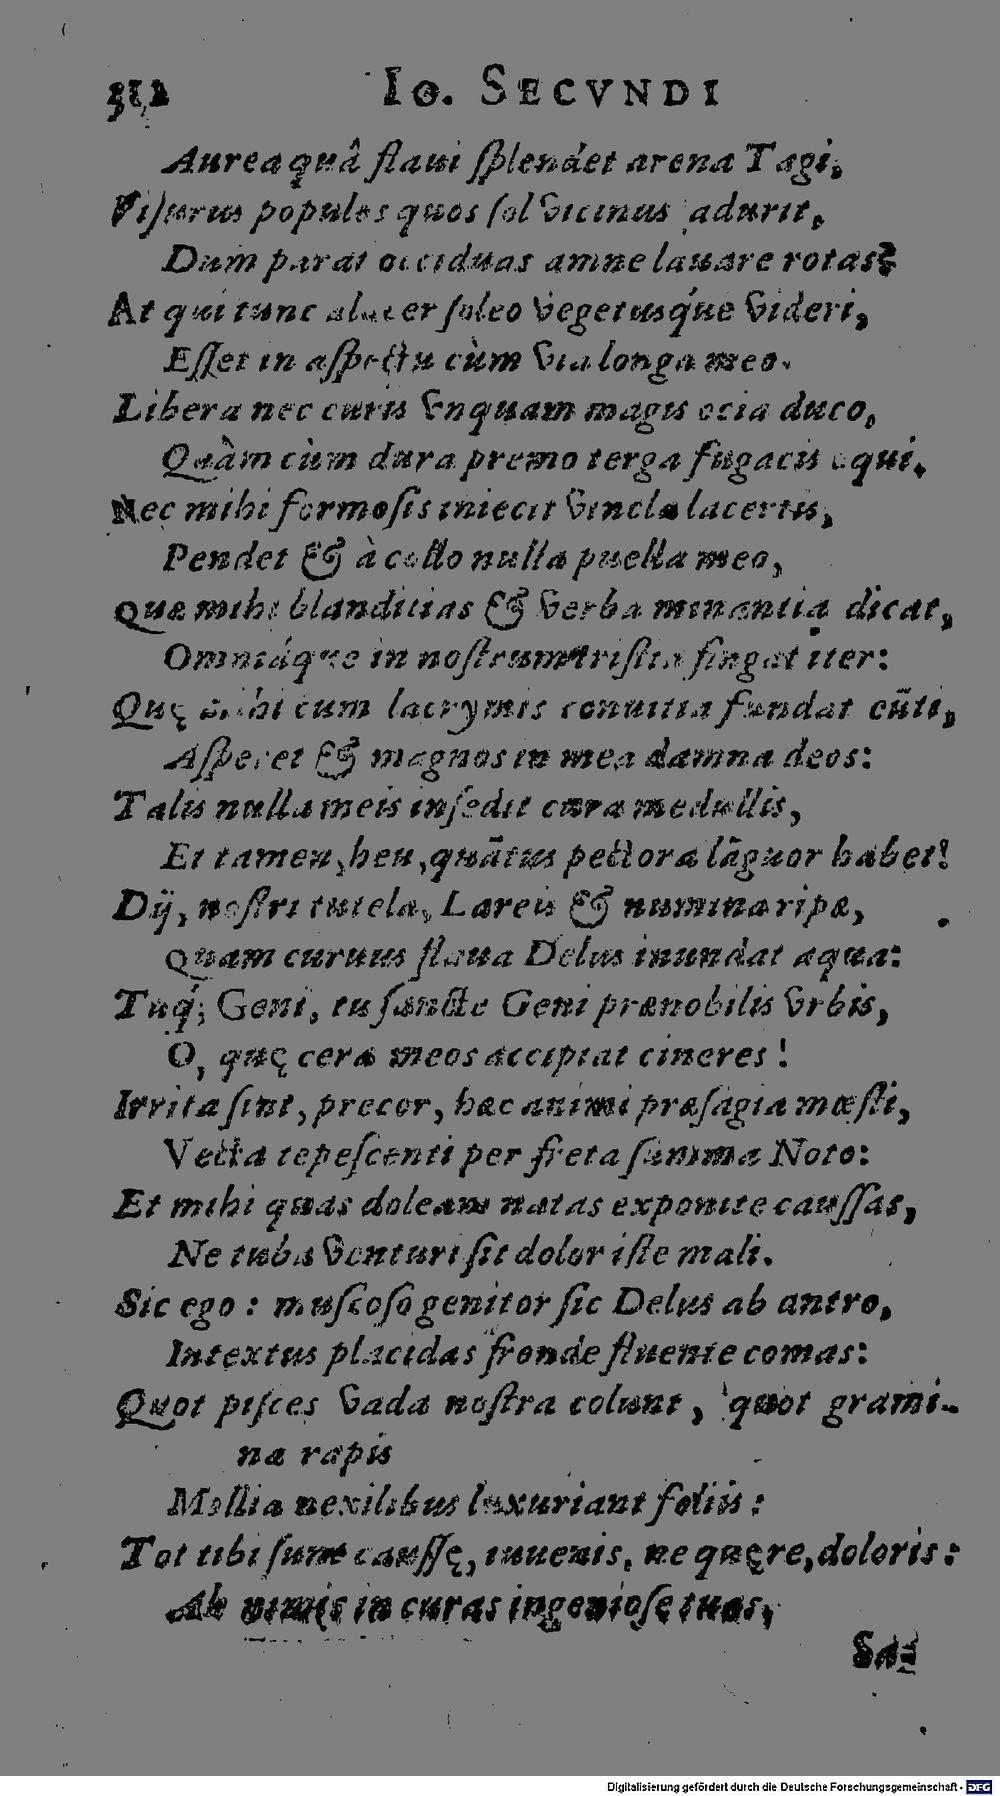 312 Io. SECVNDI
Aurea quâ flaui ſplendet arena Tagi,
Viſurus populos quos ſol vicinus adurit,
Dum parat occiduas amne lauare rotas?
At qui tunc alacer ſoleo vegetusq́ue videri,
Eſſet in aſpectu cùm via longa meo.
Libera nec curis vnquam magis ocia duco,
Quàm cùm dura premo terga fugacis equi.
Nec mihi formoſis iniecit vincla lacertis,
Pendet & à collo nulla puella meo,
Quæ mihi blanditias & verba minantia dicat,
Omniáque in noſtrum triſtia fingat iter:
Quę mihi cum lacrymis conuitia fundat eūti,
Aſperet & magnos in mea damna deos:
Talis nulla meis inſedit cura medullis,
Et tamen, heu, quātus pectora lāguor habet!
Dij, noſtri tutela, Lareis & numina ripæ,
Quam curuus flaua Delus inundat aqua:
Tuq́; Geni, tu ſancte Geni prænobilis vrbis,
O, quę cera meos accipiat cineres!
Irrita ſint, precor, hæc animi præſagia mœſti,
Vecta tepeſcenti per freta ſumma Noto:
Et mihi quas doleam natas exponite cauſſas,
Ne tuba venturi ſit dolor iſte mali.
Sic ego: muſcoſo genitor ſic Delus ab antro,
Intextus placidas fronde fluente comas:
Quot piſces vada noſtra colunt, quot grami-
na rapis
Mollia nexilibus luxuriant foliis:
Tot tibi ſunt cauſſę, iuuenis, ne quęre, doloris:
Ah nimis in curas ingenioſe tuas,
Sæ-
Digitalisierung gefördert durch die Deutsche Forschungsgemeinschaft - DFG